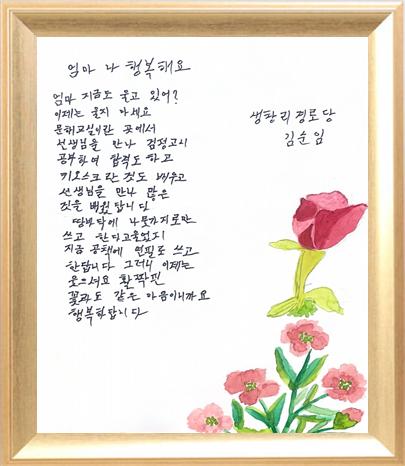 엄마 나 행복해요
엄마 지금도 울고 있어?
이제는 울지 마세요
문해교실이란 곳에서
선생님을 만나 검정고시
공부하여 합격도 하고
키오스크란 것도 배우고
선생님을 만나 많은
것을 배웠답니다
땅바닥에 나뭇가지로만
쓰고 한다고 울었지
지금 공책에 연필로 쓰고
한답니다 그러니 이제는
웃으셔요 활짝핀
꽃과도 같은 마음이니까요
행복하답니다
생창리경로당
김순임